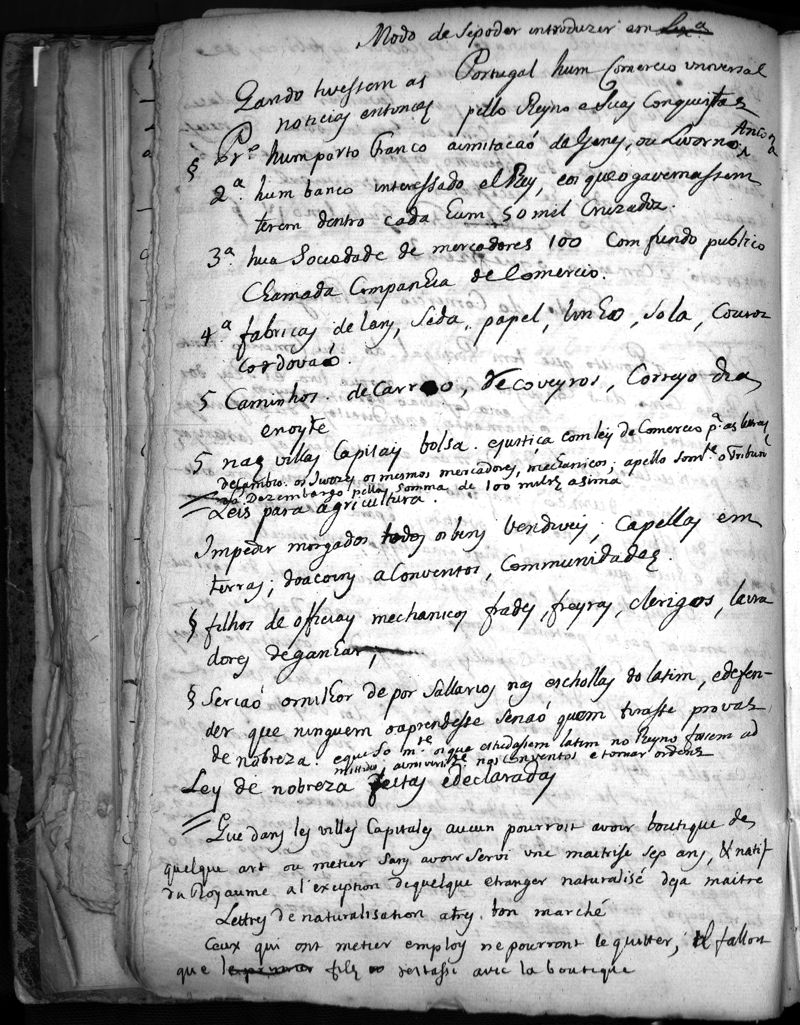 Modo de se poder introduzir em Lxª
Portugal hum Comercio universal
Quando tivessem as
noticias entonces pello Reyno e Suas Conquistas
§ Prº hum porto franco a imitacaó da Genes, ou Livorno, Ancona
2ª. hum banco interessado el Rey, e os que o gavernassem
terem dentro cada hum 50 mil Cruzados.
3ª. hua Sociedade de mercadores 100 Com fundo publico
Chamada Companhia de Comercio.
4.ª fabricas de lans, Seda, papel, linho, sola, Couros
cordovaó.
5 Caminhos. de Carro, Recoveyros, Correyo dia
e noyte
5 nas villas Capitais bolsa. e justiça com ley de Comercio pª as letras
de Cambio. os Juizes os mesmos mercadores, mechanicos; apello somte. o Tribunal
do Dezembargo pellas somma de 100 milrs asima
Leis para agricultura.
Impedir morgados todos os bens vendiveis; Capellas em
terras; doacoins a Conventos, Communidades.
§ filhos de officiais mechanicos frades, freyras, clerigos, lavra
dores de ganhar,
§ Seriaó o milhor de por Sallarios nas escholas do latim, e defen-
der que ninguem o aprendesse senaó quem tirasse provas
de nobreza. e que so mte os que estudassem latim no Reyno fosem ad
mittidos a universide. nos conventos e tomar ordens
Ley de nobreza feitas e declaradas
Que dans les villes Capitales aucun pourroit avoir boutique de
quelque art ou metier sans avoir servi une maitrise sep ans, & natif
du Royaume a l'exception de quelque etranger naturalisé deja maitre
Lettres de naturalisation a tres bon marché
Ceux qui ont metier employ ne pourront le quitter; il falloit
que le premier fils restasse avec la boutique